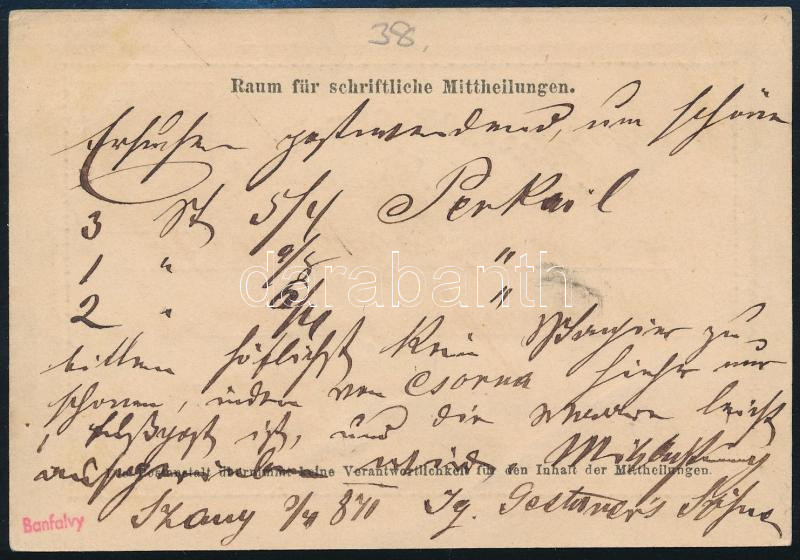 38.
Raum für schriftliche Mittheilungen.
Ersuchen postwendend, um schöne
3 St 5/4 Perkail
1 " 9/8 "
2 " 6/4 "
bitten höflichst kein Papier zu
schonen, indem von Csorna hieher nur
Fußpost ist, und die Waare leicht
wird,
Die Postanstalt übernimmt keine Verantwortlichkeit für den Inhalt der Mittheilungen.
Szany 871 Ig. Söhne
Banfalvy
darabanth